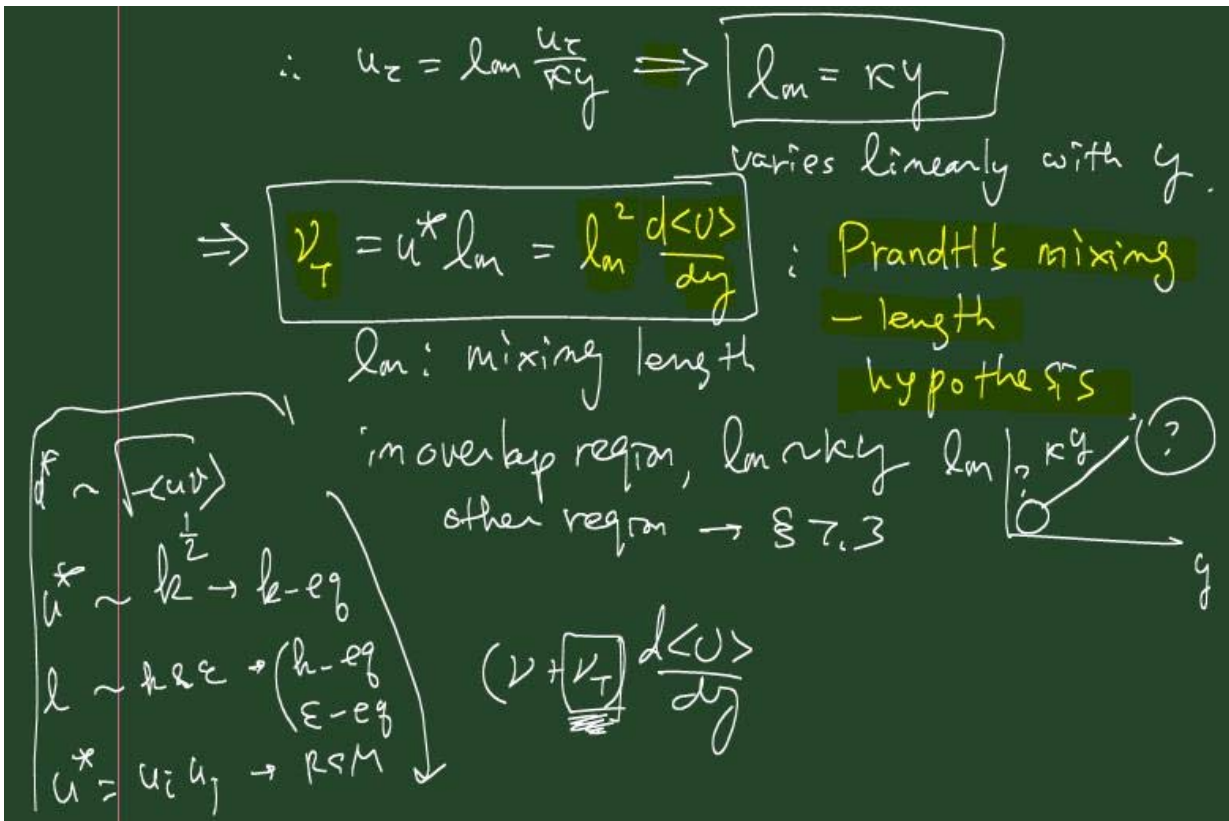 ∴ u_τ = lm u_τ/κy ⟹ lm = κy
varies linearly with y.
⇒ ν_T = u* lm = lm² d<U>/dy : Prandtl's mixing
- length
lm : mixing length
hypothesis
in overlap region, lm ~ κy
other region → § 7.3
lm ? κy ?
y
~ √-<uv>
u* ~ k^1/2 → k-eq
l ~ k & ε → (k-eq
ε-eq
u* = u_i u_j → RSM
(ν + ν_T) d<U>/dy